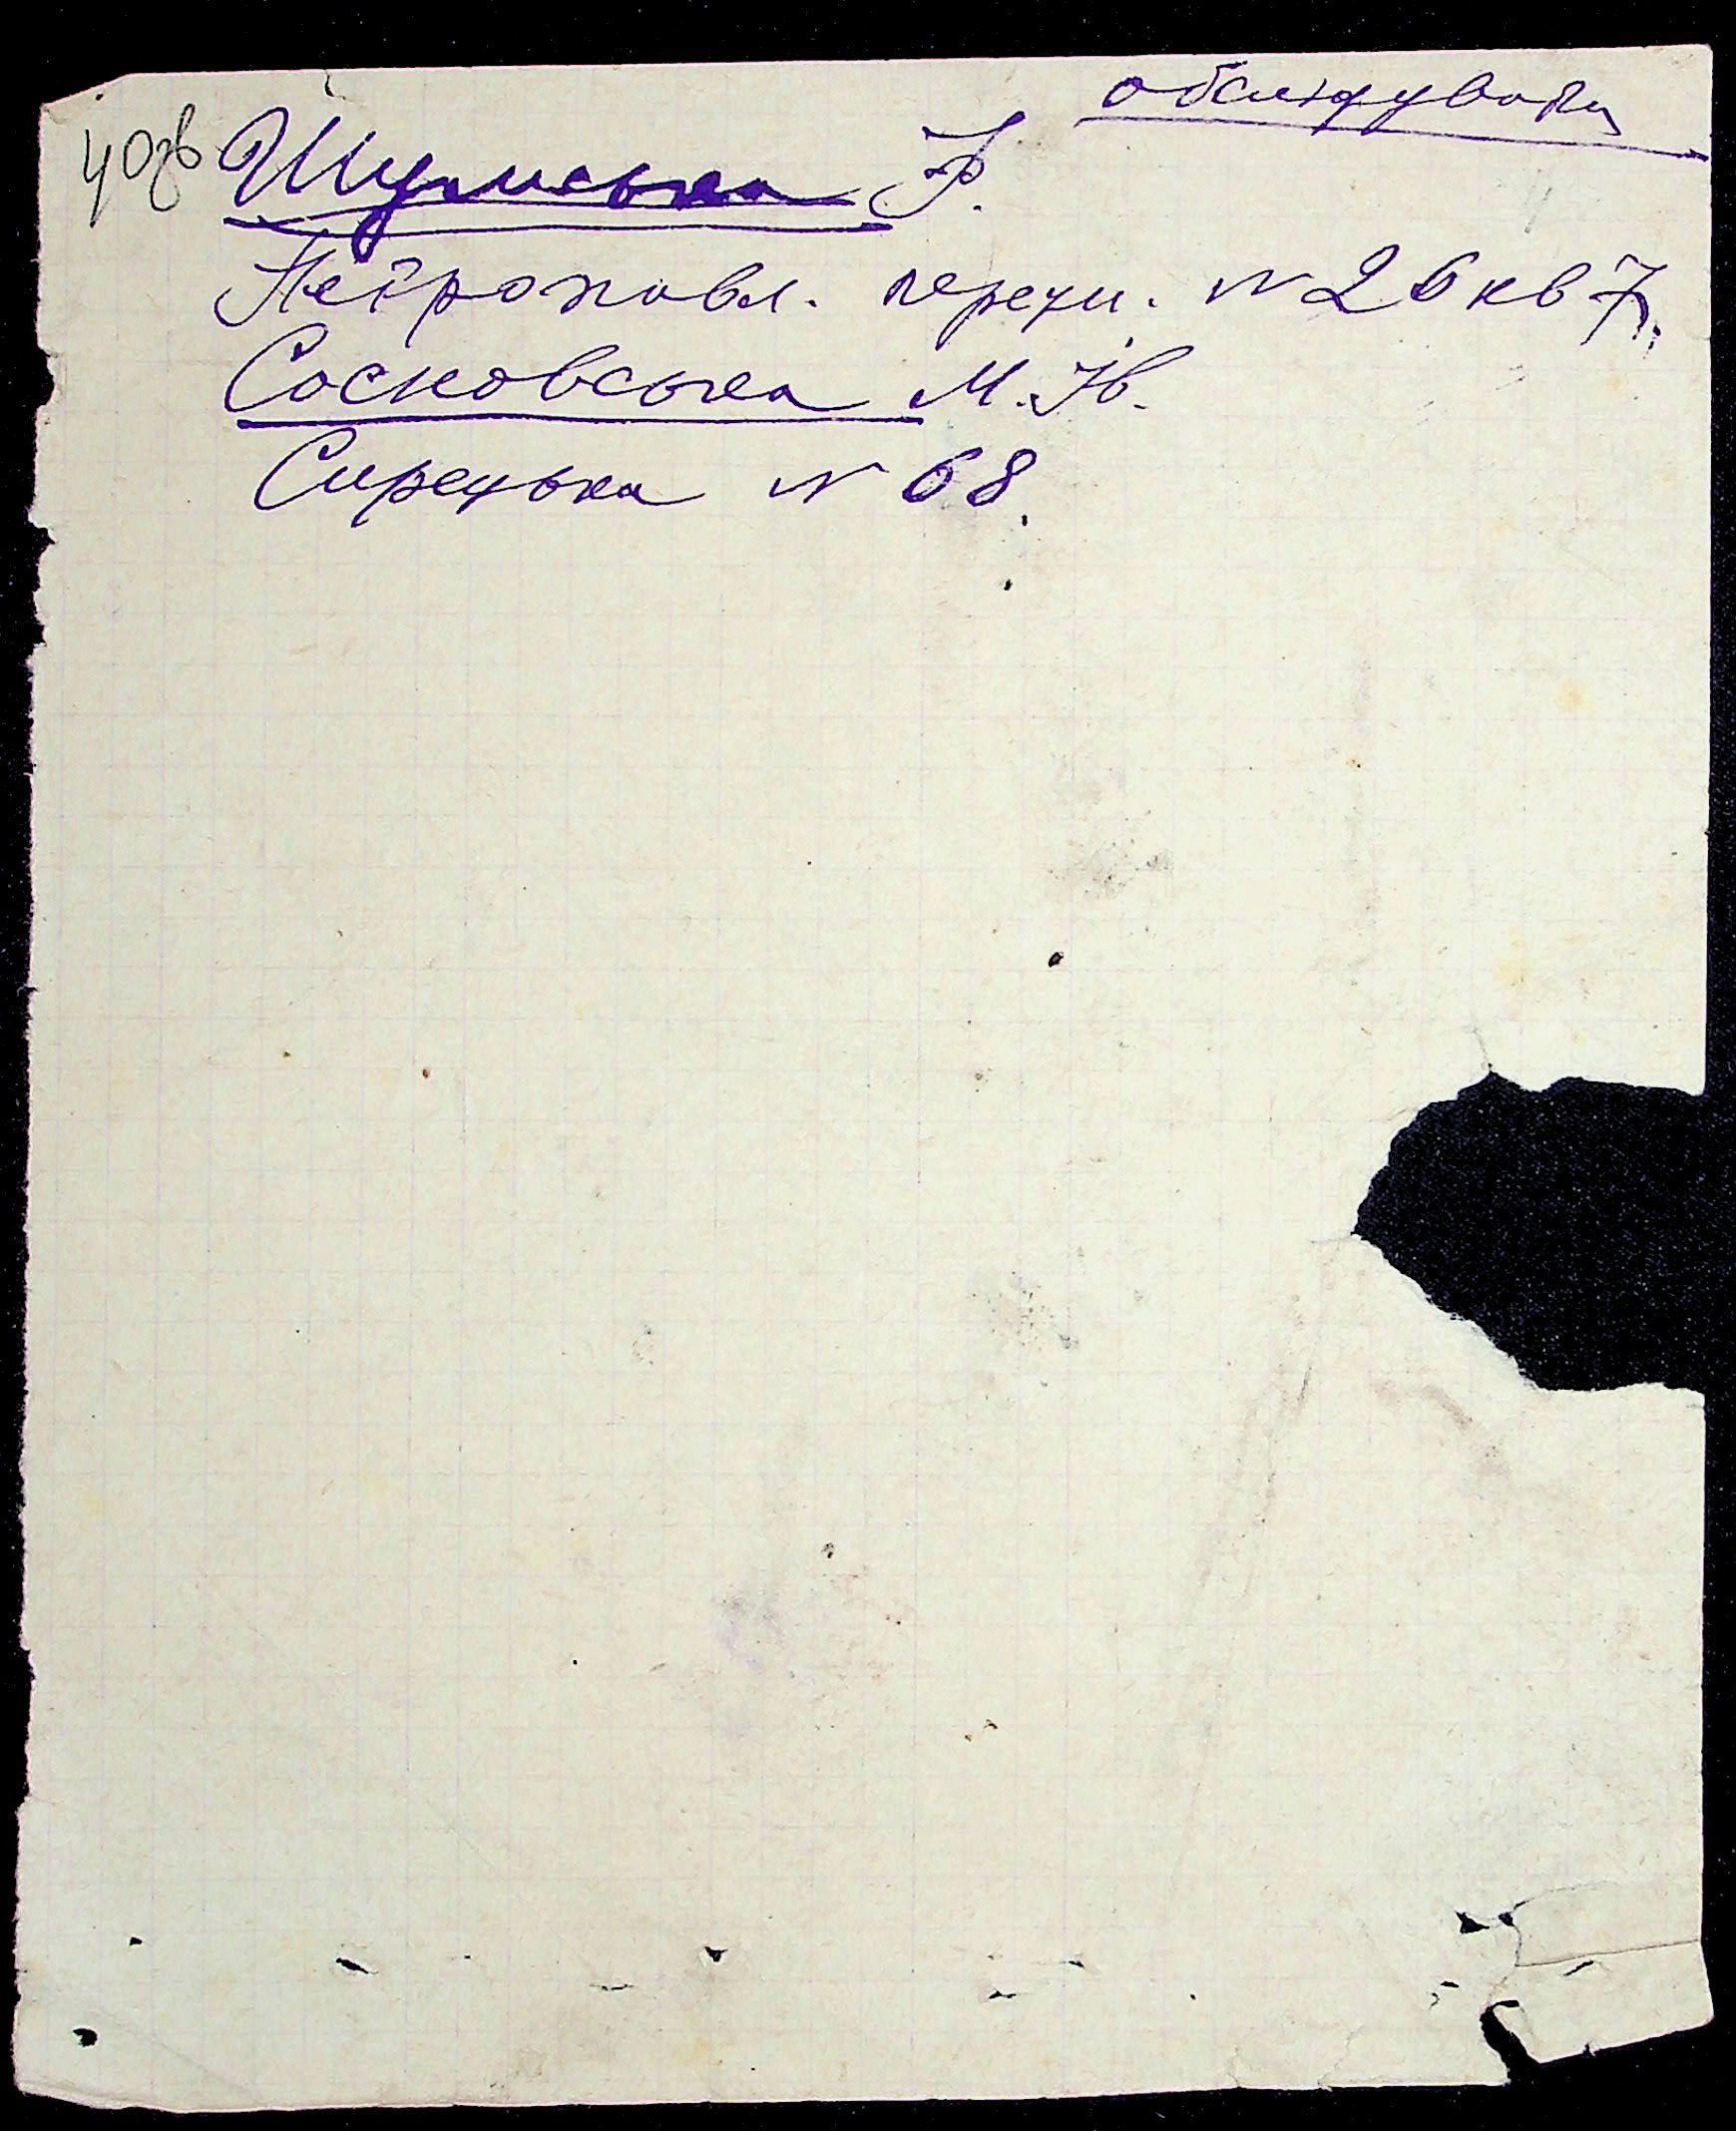 обслідувати
40зв Шумська Ф.
Петропавл. переул. № 26 кв 7.
Сосновська М. Ів.
Сирецька № 68.